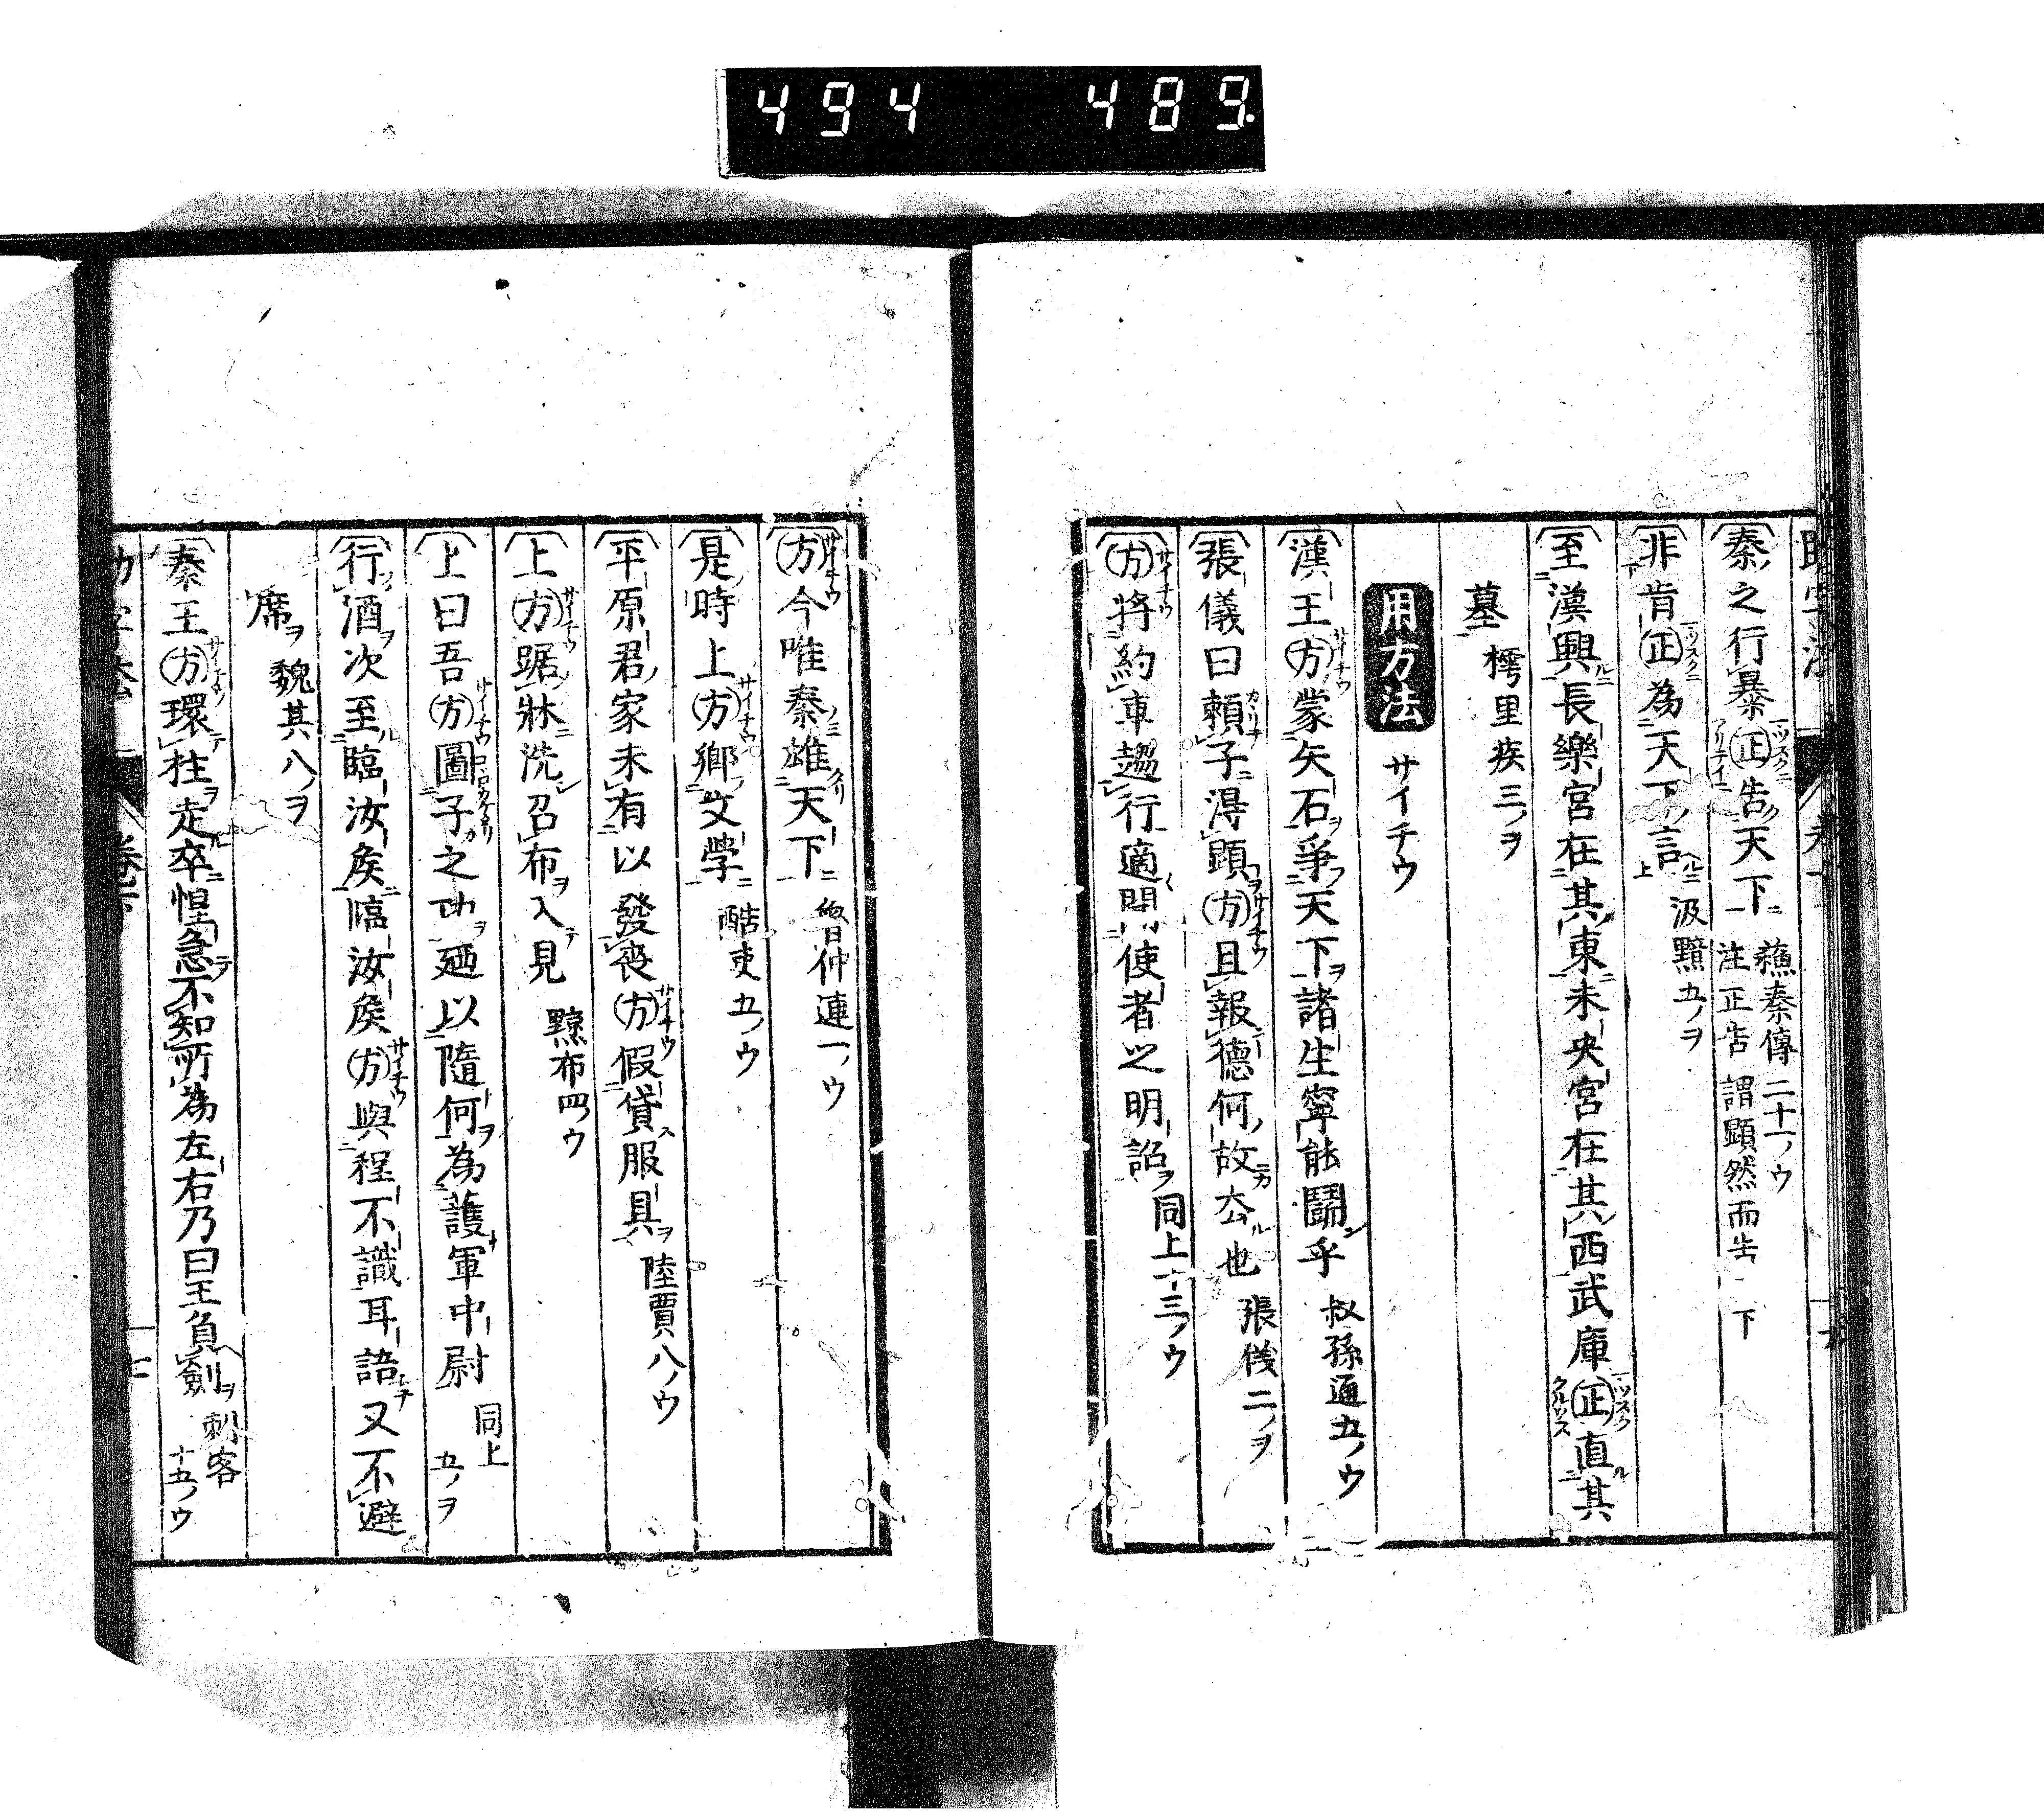 494 489
秦之行暴正告天下 蘓秦傳二十一ノウ 注正告謂顕然而告下
非肯正為天下言 汲黯五ノヲ
至漢興長樂宮在其東未央宮在其西武庫正直其
墓 樗里疾三ノヲ
用方法 サイチウ
漢王方蒙矢石爭天下諸生寧能鬪乎 叔孫通五ノウ
張儀曰頼子得顕方且報德何故去也 張儀二ノヲ
方将約車趨行適聞使者之明詔 同上十三ノウ
方今唯秦雄天下 魯仲連一ノウ
是時上方鄉文學 酷吏五ノウ
平原君家未有以發喪方假貸服具 陸賈八ノウ
上方踞牀洗召布入見 黥布四ノウ
上曰吾方圖子之功廼以隨何為護軍中尉 同上五ノヲ
行酒次至臨汝矦臨汝矦方與程不識耳語又不避
席 魏其八ノヲ
秦王方環柱走卒惶急不知所為左右乃曰王負劍 刺客十五ノウ